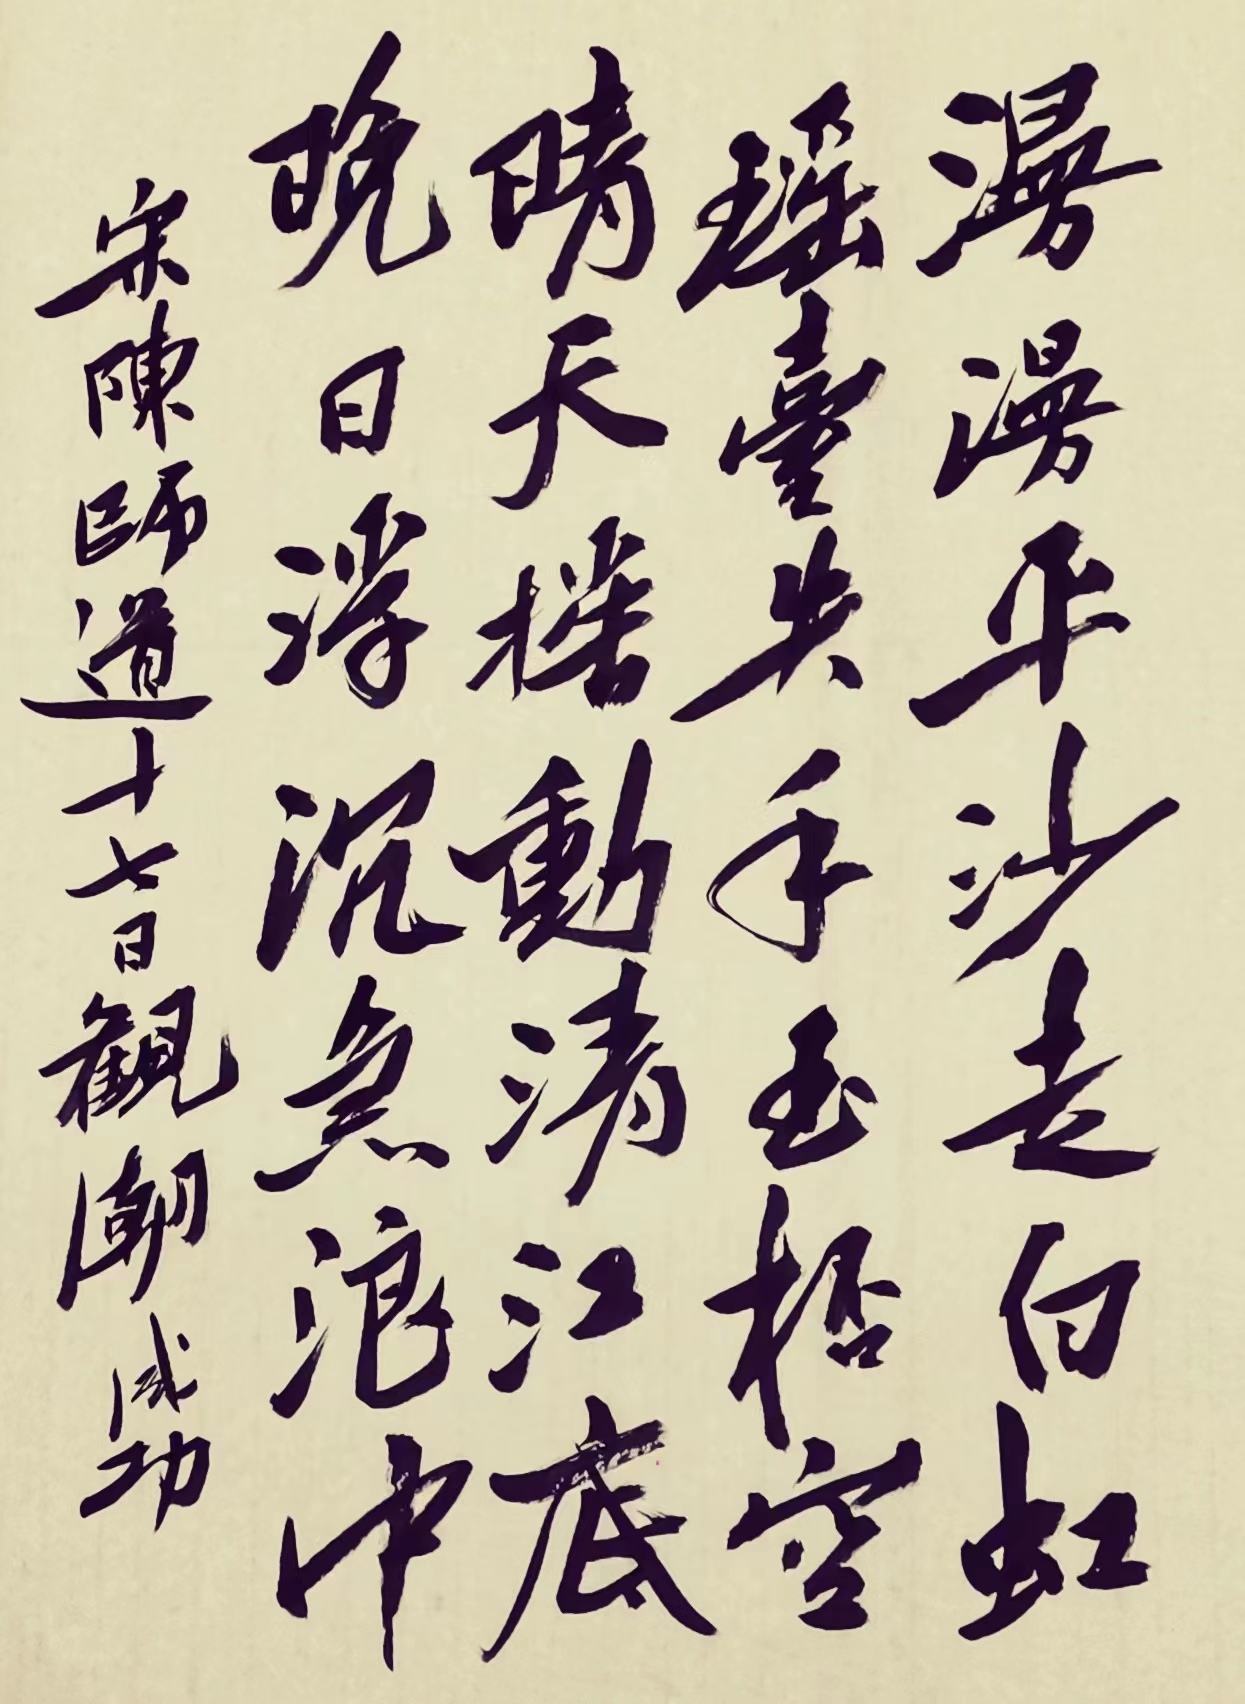 漫漫平沙走白虹
瑶臺失手玉杯空
晴天搖動清江底
晚日浮沉急浪中
宋陳師道十七日觀潮成功